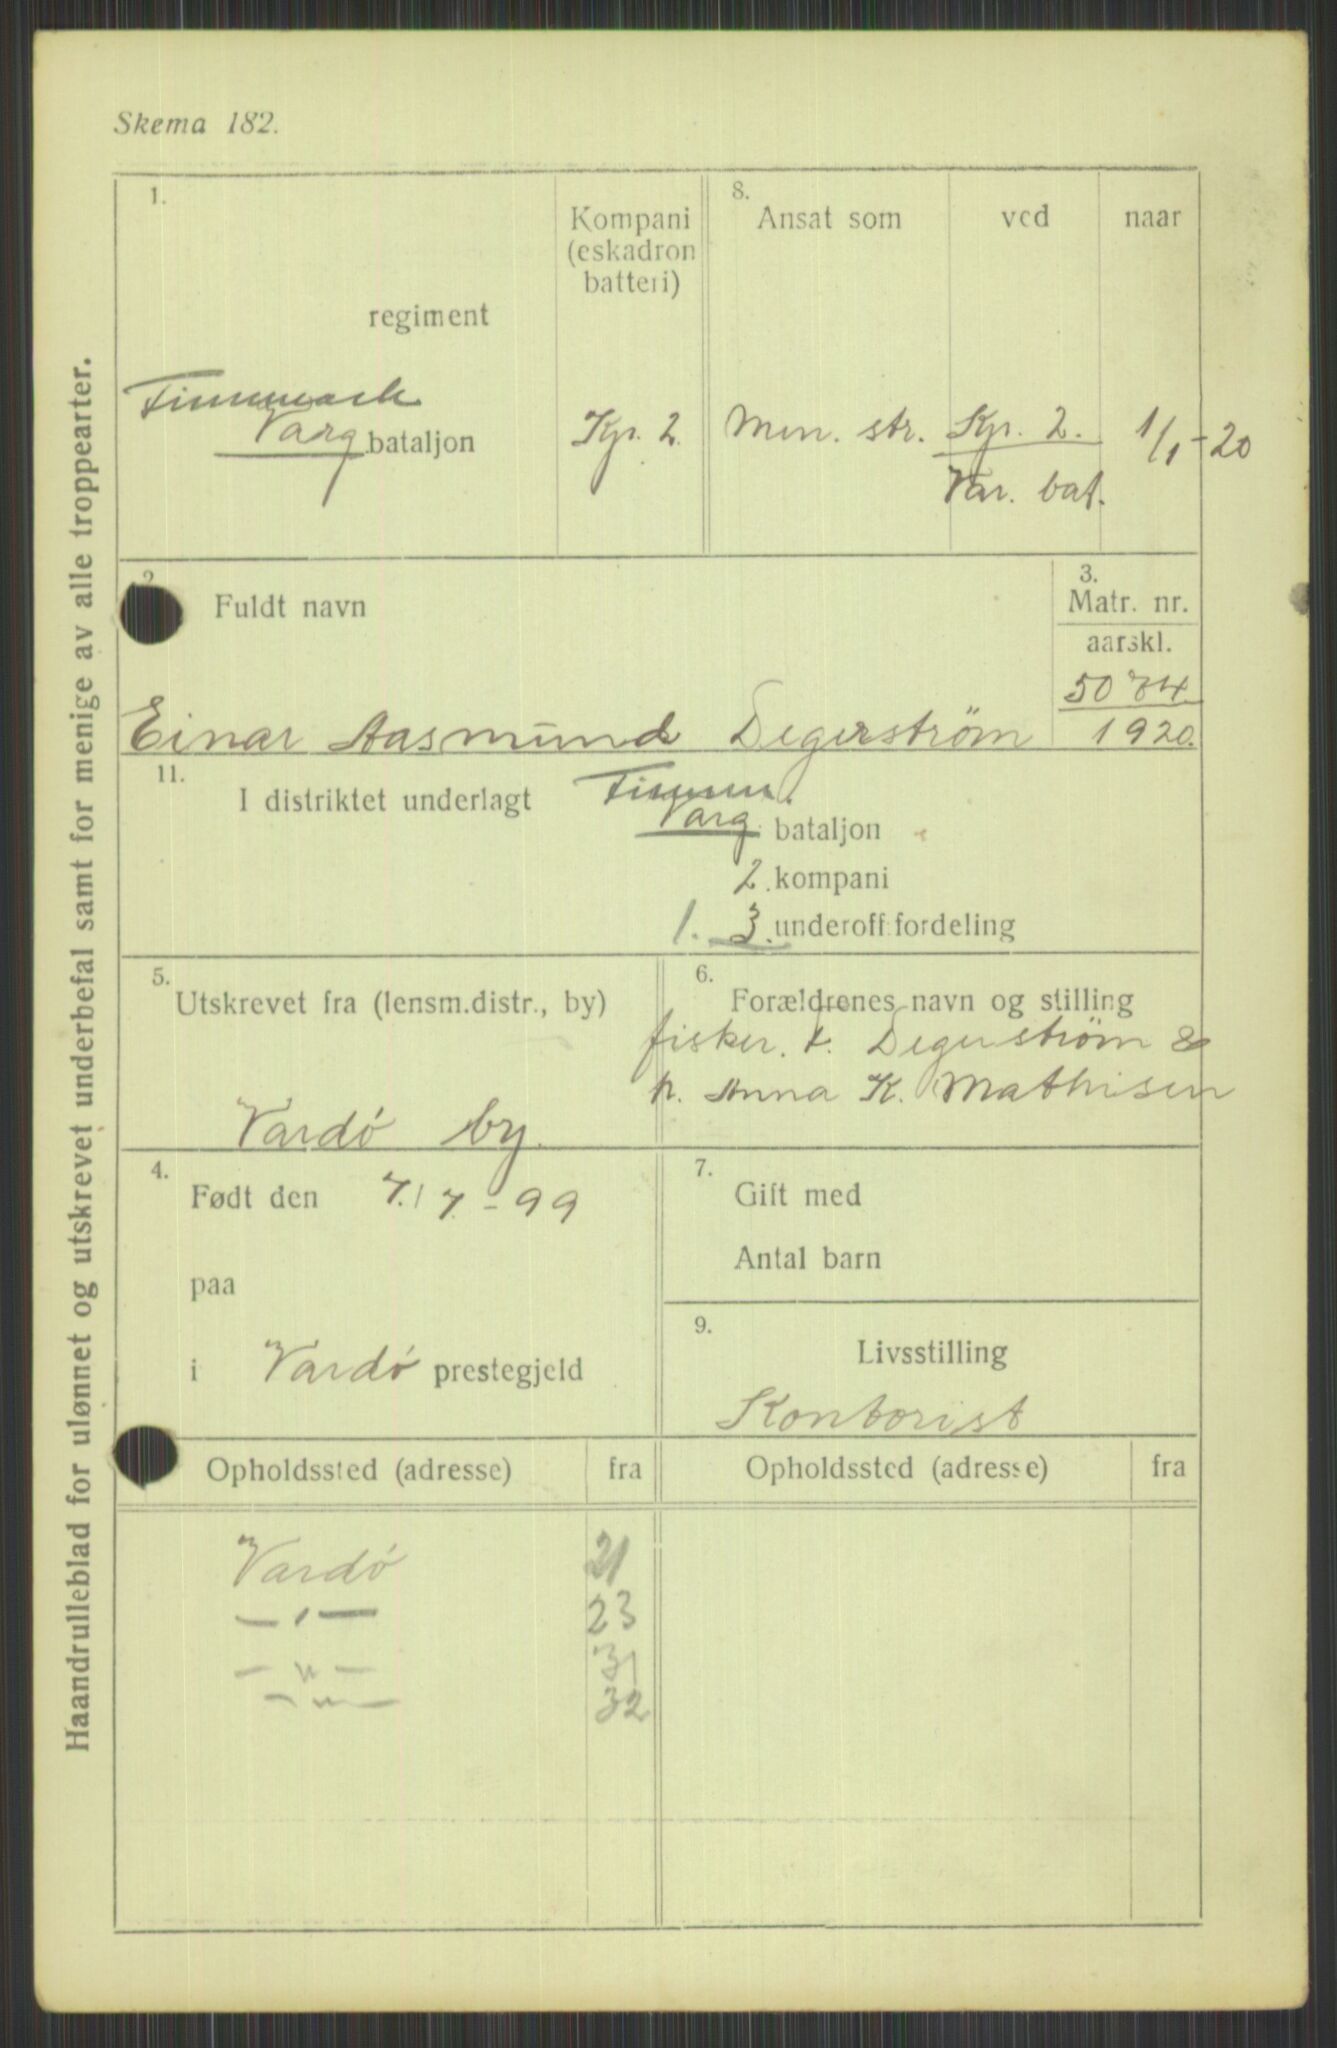 Skema 182.
Haandrulleblad for ulønnet og utskrevet underbefal samt for menige av alle troppearter.
1.
regiment
Finnmark
Varg bataljon
Kompani
(eskadron
batteri)
Kp. 2.
8.
Ansat som
ved
naar
Men. str.
Kp. 2.
Var. bat.
1/1-20
2.
Fuldt navn
Einar Aasmund Degerström
3.
Matr. nr.
aarskl.
5074
1920.
11.
I distriktet underlagt
Finnm.
Varg. bataljon
2. kompani
1. 3. underoff.fordeling
5.
Utskrevet fra (lensm.distr., by)
Vardø by.
6.
Forældrenes navn og stilling
fisker. Degerström &
h. Anna K. Mathisen
4.
Født den 7./7. - 99
paa
i Vardø prestegjeld
7.
Gift med
Antal barn
9.
Livsstilling
Kontorist
Opholdssted (adresse) fra
Opholdssted (adresse) fra
Vardø 21
— " — 23
— " — 31
— " — 32